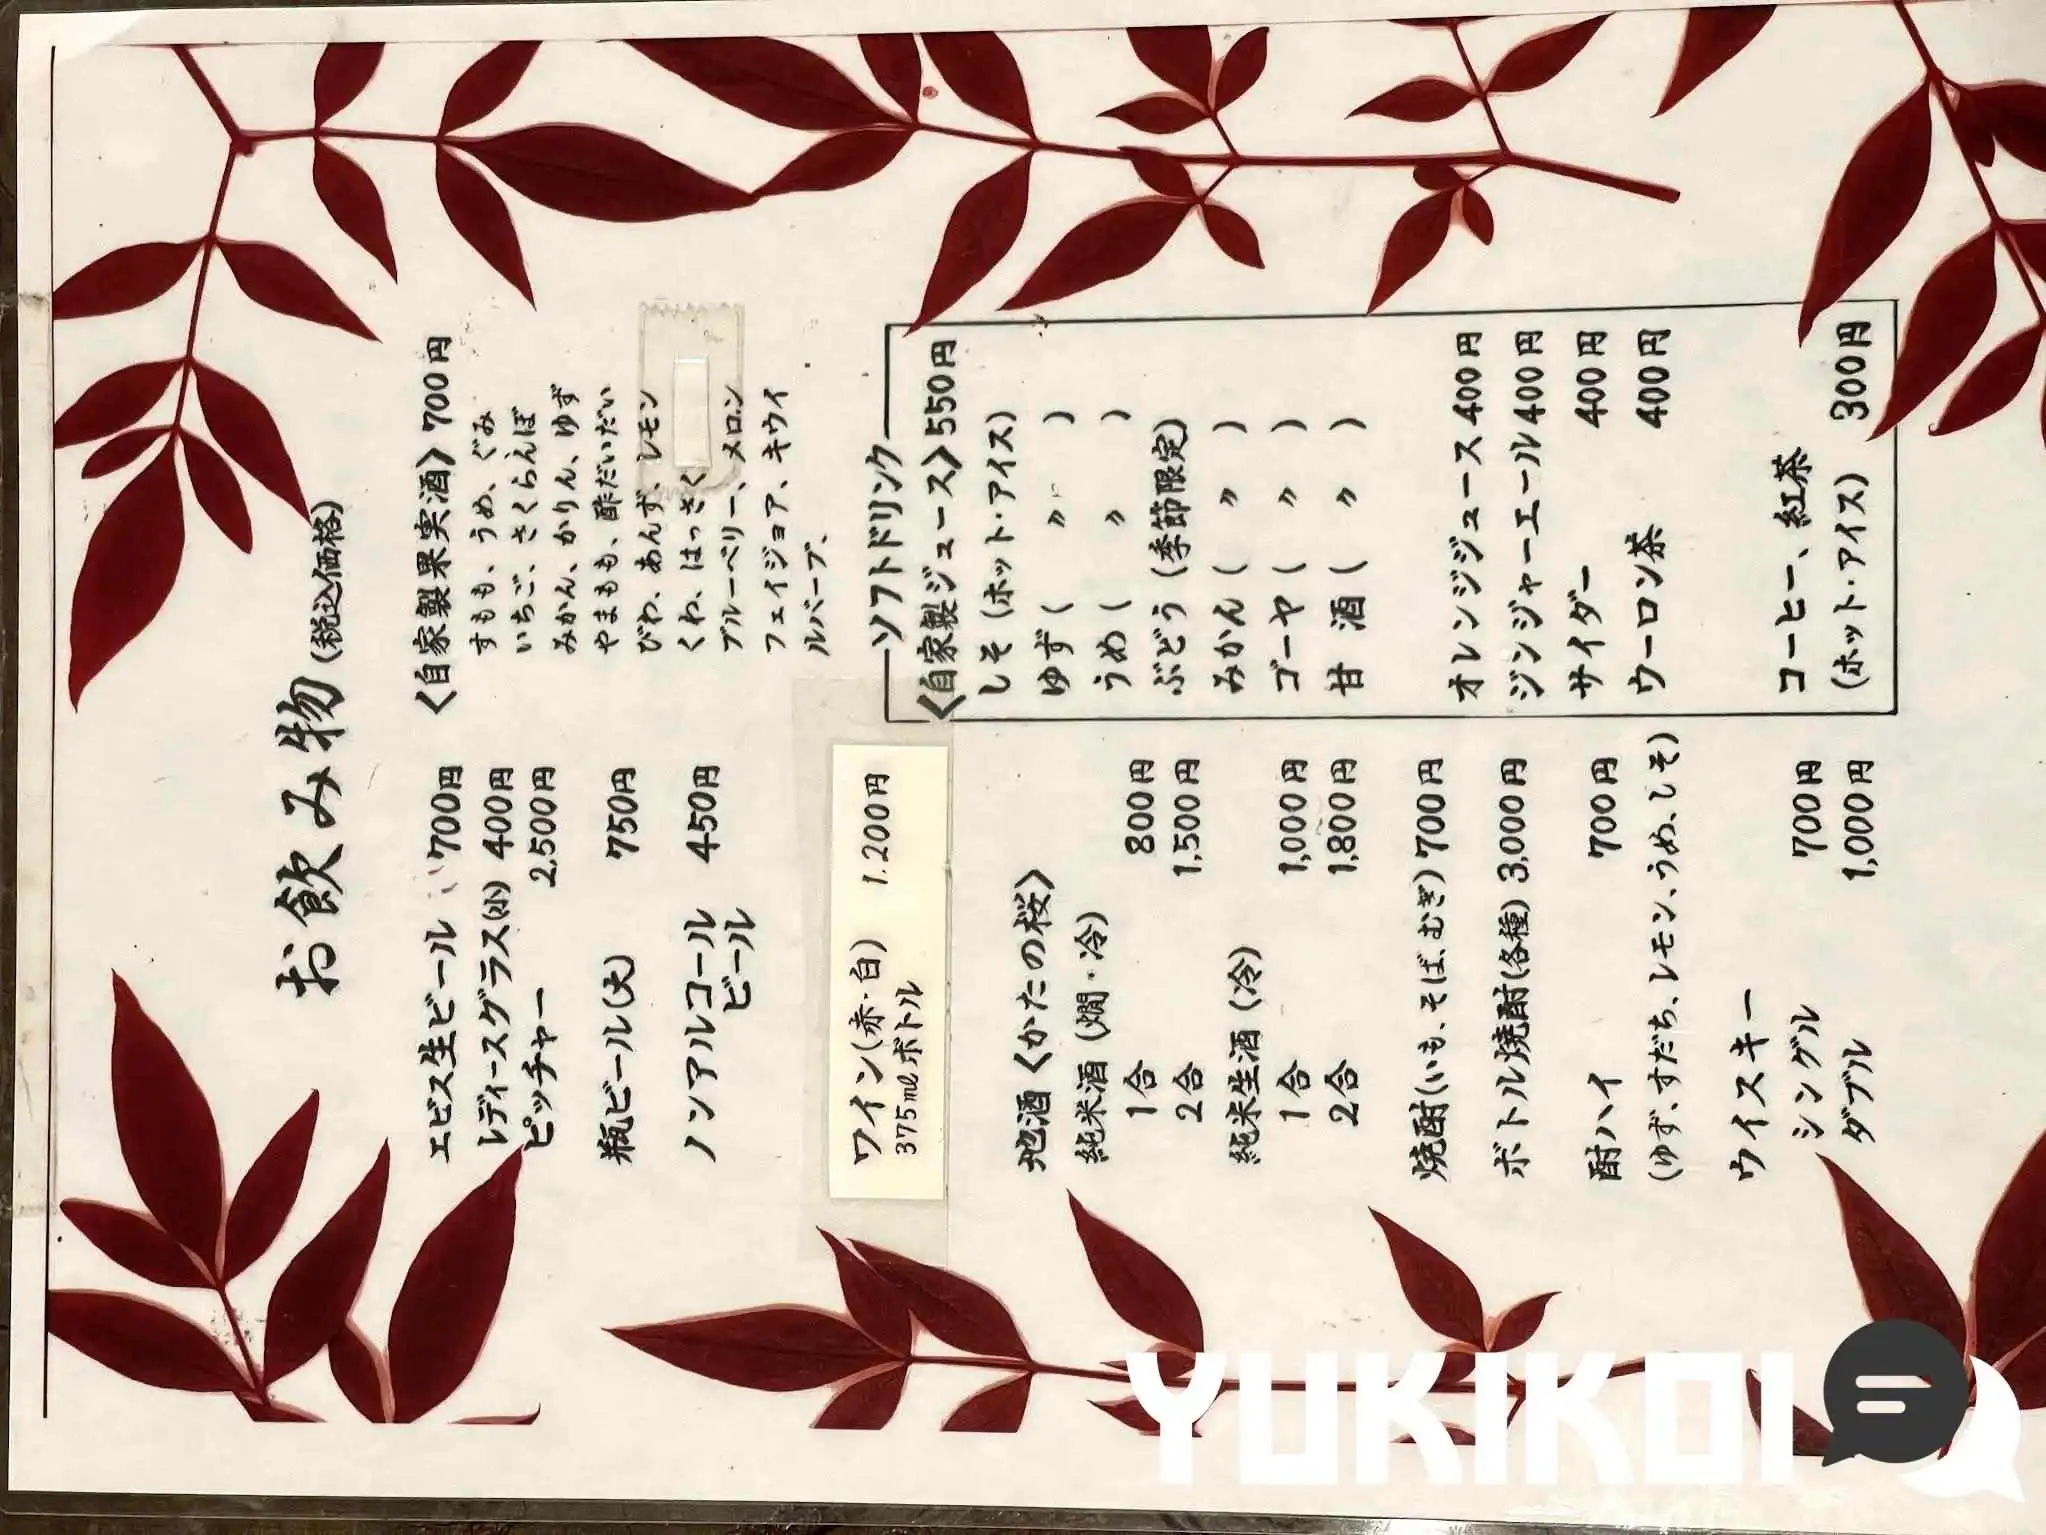 お飲み物(税込価格)
エビス生ビール 700円
レディースグラス(小) 400円
ピッチャー 2,500円
瓶ビール(大) 750円
ノンアルコール 450円
ビール
ワイン(赤・白) 1,200円
375mlボトル
地酒〈かたの桜〉
純米酒(燗・冷)
1合 800円
2合 1,500円
純米生酒(冷)
1合 1,000円
2合 1,800円
焼酎(いも、そば、むぎ) 700円
ボトル焼酎(各種) 3,000円
酎ハイ 700円
(ゆず、すだち、レモン、うめ、しそ)
ウイスキー
シングル 700円
ダブル 1,000円
〈自家製果実酒〉700円
すもも、うめ、ぐみ
いちご、さくらんぼ
みかん、かりん、ゆず
やまもも、酢だいだい
びわ、あんず、レモン
くわ、はっさく
ブルーベリー、メロン
フェイジョア、キウイ
ルバーブ、
ソフトドリンク
〈自家製ジュース〉550円
しそ(ホット・アイス)
ゆず( 〃 )
うめ( 〃 )
ぶどう(季節限定)
みかん( 〃 )
ゴーヤ( 〃 )
甘酒( 〃 )
オレンジジュース 400円
ジンジャーエール 400円
サイダー 400円
ウーロン茶 400円
コーヒー、紅茶
(ホット・アイス) 300円
YUKIKOI